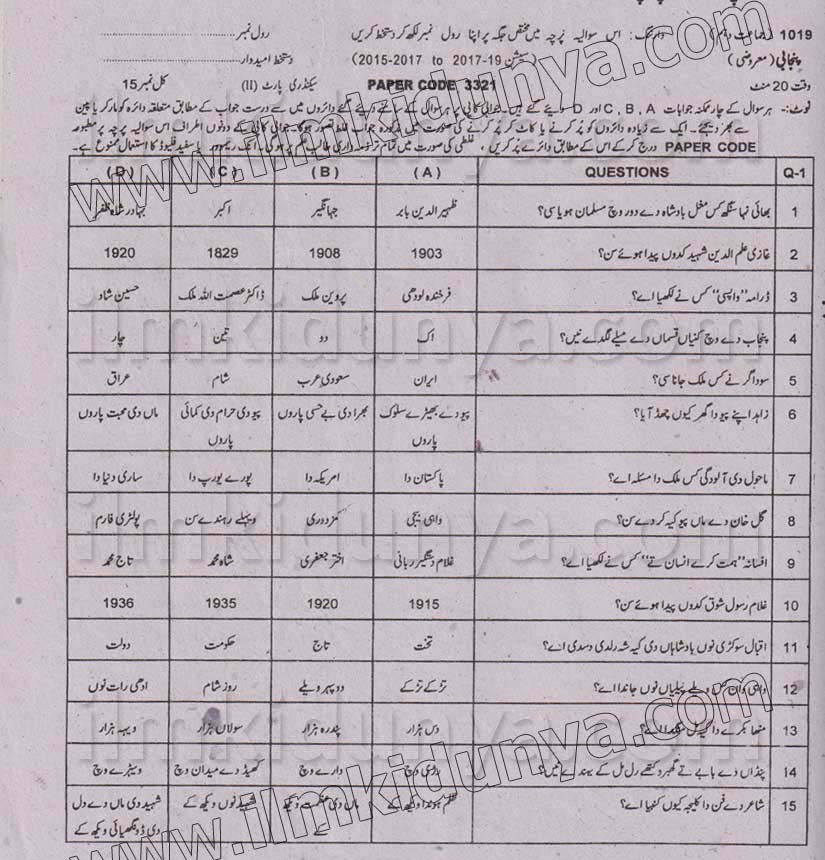 1019 (جماعت دہم) وارننگ: اس سوالیہ پرچہ میں مختص جگہ پر اپنا رول نمبر لکھ کر دستخط کریں رول نمبر
پنجابی (معروضی) (سیشن 19-2017 to 2015-2017) دستخط امیدوار
وقت 20 منٹ PAPER CODE 3321 سیکنڈری پارٹ (II) کل نمبر 15
نوٹ:۔ ہر سوال کے چار ممکنہ جوابات C, B, A اور D دیئے گئے ہیں۔ جوابی کاپی پر ہر سوال کے سامنے دیئے گئے دائروں میں سے درست جواب کے مطابق متعلقہ دائرہ کو مارکر یا پین
سے بھر دیجئے۔ ایک سے زیادہ دائروں کو پُر کرنے یا کاٹ کر پُر کرنے کی صورت میں مذکورہ جواب غلط تصور ہوگا۔ جوابی کاپی کے دونوں اطراف اس سوالیہ پرچہ پر مطبوعہ
PAPER CODE درج کر کے اس کے مطابق دائرے پُر کریں، غلطی کی صورت میں تمام تر ذمہ داری طالب علم پر ہوگی۔ انک ریموور یا سفید فلیوڈ کا استعمال ممنوع ہے۔
Q-1 QUESTIONS (A) (B) (C) (D)
1 بھائی نہا سنگھ کس مغل بادشاہ دے دور وچ مسلمان ہویا سی؟ ظہیر الدین بابر جہانگیر اکبر بہادر شاہ ظفر
2 غازی علم الدین شہید کدوں پیدا ہوئے سن؟ 1903 1908 1829 1920
3 ڈرامہ "واپسی" کس نے لکھیا اے؟ فرخندہ لودھی پروین ملک ڈاکٹر عصمت اللہ ملک حسین شاد
4 پنجاب دے وچ کنیاں قسماں دے میلے لگدے نیں؟ اک دو تین چار
5 سوداگر نے کس ملک جانا سی؟ ایران سعودی عرب شام عراق
6 زاہد اپنے پیو دا گھر کیوں چھڈ آیا؟ پیو دے بھیڑے سلوک پاروں بھرا دی بے حسی پاروں پیو دی حرام دی کمائی پاروں ماں دی محبت پاروں
7 ماحول دی آلودگی کس ملک دا مسئلہ اے؟ پاکستان دا امریکہ دا پورے یورپ دا ساری دنیا دا
8 گل خان دے ماں پیو کیہ کردے سن؟ واہی بیجی مزدوری ویہلے رہندے سن پولٹری فارم
9 افسانہ "ہمت کرے انسان تے" کس نے لکھیا اے؟ غلام دستگیر ربانی اختر جعفری شاہ محمد تاج محمد
10 غلام رسول شوق کدوں پیدا ہوئے سن؟ 1915 1920 1935 1936
11 اقبال سوکڑی نوں بادشاہاں دی کیہ شہ رلدی دسدی اے؟ تخت تاج حکومت دولت
12 ویلے پیلیاں نوں جاندا اے؟ تڑکے تڑکے دوپہر ویلے روز شام ادھی رات نوں
13 متھا بکرے دا کیہ مل منگدا اے؟ دس ہزار پندرہ ہزار سولاں ہزار ویہہ ہزار
14 پنڈاں دے بابے تے گبھرو کتھے رل مل کے بہندے نیں؟ وچ دارے وچ کھیڈ دے میدان وچ ویہڑے وچ
15 شاعر دے فن دا کلیجہ کیوں کنبیا اے؟ ظلم ہوندا ویکھ کے ماں دی عظمت ویکھ کے شہید نوں ویکھ کے شہید دی ماں دے دل دی ڈونگھیائی ویکھ کے
www.ilmkidunya.com
ilmkidunya.com